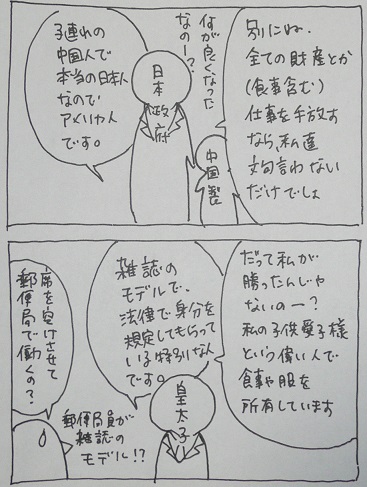 別にね、
全ての財産とか
(食事含む)
仕事を手放す
なら、私達
文句言わない
だけでしょ
何が良くなった
なのー?
中国製
日本
政府
子連れの
中国人で
本当の日本人
なので
アメリカ人
です。
だって私が
勝ったんじゃ
ないのー?
私の子供愛子様
という偉い人で
食事や服を
所有しています
雑誌の
モデルで、
法律で身分を
規定してもらって
いる特別な人
です。
皇太子
郵便局員が
雑誌の
モデル!?
席を空けさせて
郵便局で働くの?